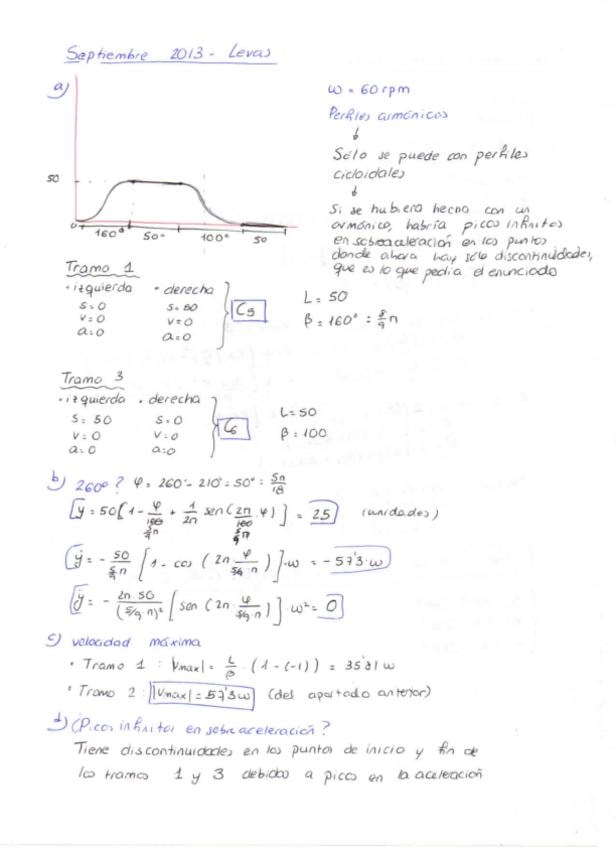 Septiembre 2013 - Levas
a)
ω = 60 rpm
Perfiles armónicos
↓
Sólo se puede con perfiles
cicloidales
↓
Si se hubiera hecho con un
armónico, habría picos infinitos
en sobreaceleración en los puntos
donde ahora hay sólo discontinuidades,
que es lo que pedía el enunciado
50
0 160° 50° 100° 50
Tramo 1
· izquierda · derecha
s=0 s=50
v=0 v=0
a=0 a=0
C5
L = 50
β = 160° = 8/9 π
Tramo 3
· izquierda · derecha
s = 50 s=0
v = 0 v=0
a = 0 a=0
C6
L=50
β = 100
b) 260°? φ = 260° - 210° = 50° = 5π/18
y = 50[1 - φ/(5/9 π) + 1/2π sen(2π/(5/9 π) · φ)] = 25 (unidades)
ẏ = - 50/(5/9 π) [1 - cos (2π φ/(5/9·π))]·ω = - 57'3·ω
ÿ = - 2π·50/(5/9·π)² [sen (2π · φ/(5/9·π))]·ω² = 0
c) velocidad máxima
· Tramo 1 : |Vmax| = L/β · (1 - (-1)) = 35'81 ω
· Tramo 2 : |Vmax| = 57'3ω (del apartado anterior)
d) ¿Picos infinitos en sobreaceleración?
Tiene discontinuidades en los puntos de inicio y fin de
los tramos 1 y 3 debidos a picos en la aceleración